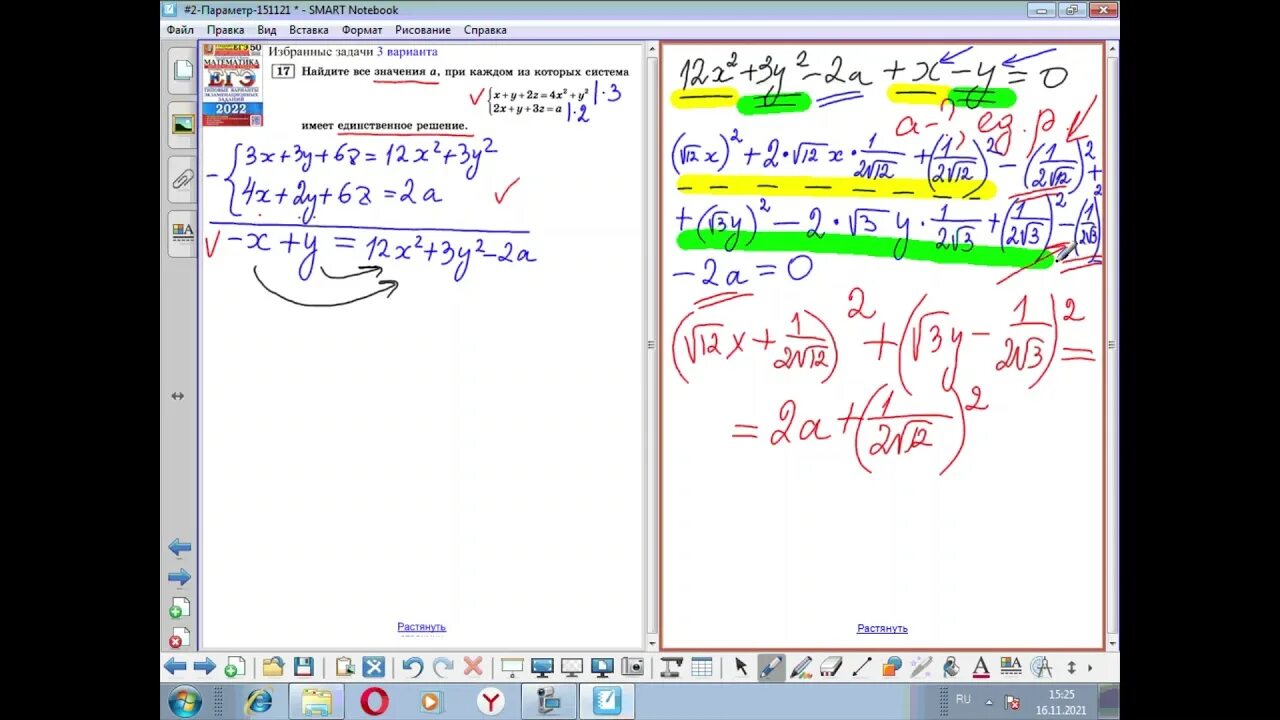 #2-Параметр-151121 * - SMART Notebook
Файл Правка Вид Вставка Формат Редактор Справка
Избранные задачи 3 варианта
50
МАТЕМАТИКА
ЕГЭ
ТИПОВЫЕ ВАРИАНТЫ
ЭКЗАМЕНАЦИОННЫХ
ЗАДАНИЙ
2022
17 Найдите все значения a, при каждом из которых система
{x + y + 2z = 4x² + y² |·3
{2x + y + 3z = a |·2
имеет единственное решение.
{3x+3y+6z=12x²+3y²
- {4x+2y+6z=2a
-x+y=12x²+3y²-2a
Растянуть
12x²+3y²-2a+x-y=0
a-?, ед.р
(√12x)²+2·√12x·1/(2√12)+(1/(2√12))²-(1/(2√12))²+
+(√3y)²-2·√3y·1/(2√3)+(1/(2√3))²-(1/(2√3))²
-2a=0
(√12x+1/(2√12))²+(√3y-1/(2√3))²=
=2a+(1/(2√12))²
Растянуть
RU
15:25
16.11.2021